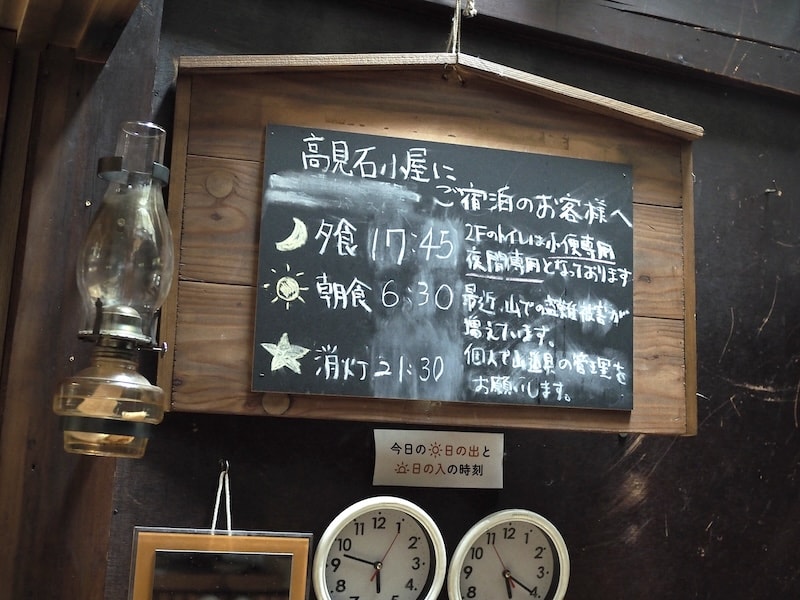 高見石小屋に
ご宿泊のお客様へ
夕食 17:45
朝食 6:30
消灯 21:30
2Fのトイレは小便専用
夜間専用となっております
最近、山での盗難被害が
増えています。
個人で山道具の管理を
お願いします。
今日の日の出と
日の入の時刻
12 1 2 3 4 8 9 10 11
12 1 2 3 4 8 9 10 11